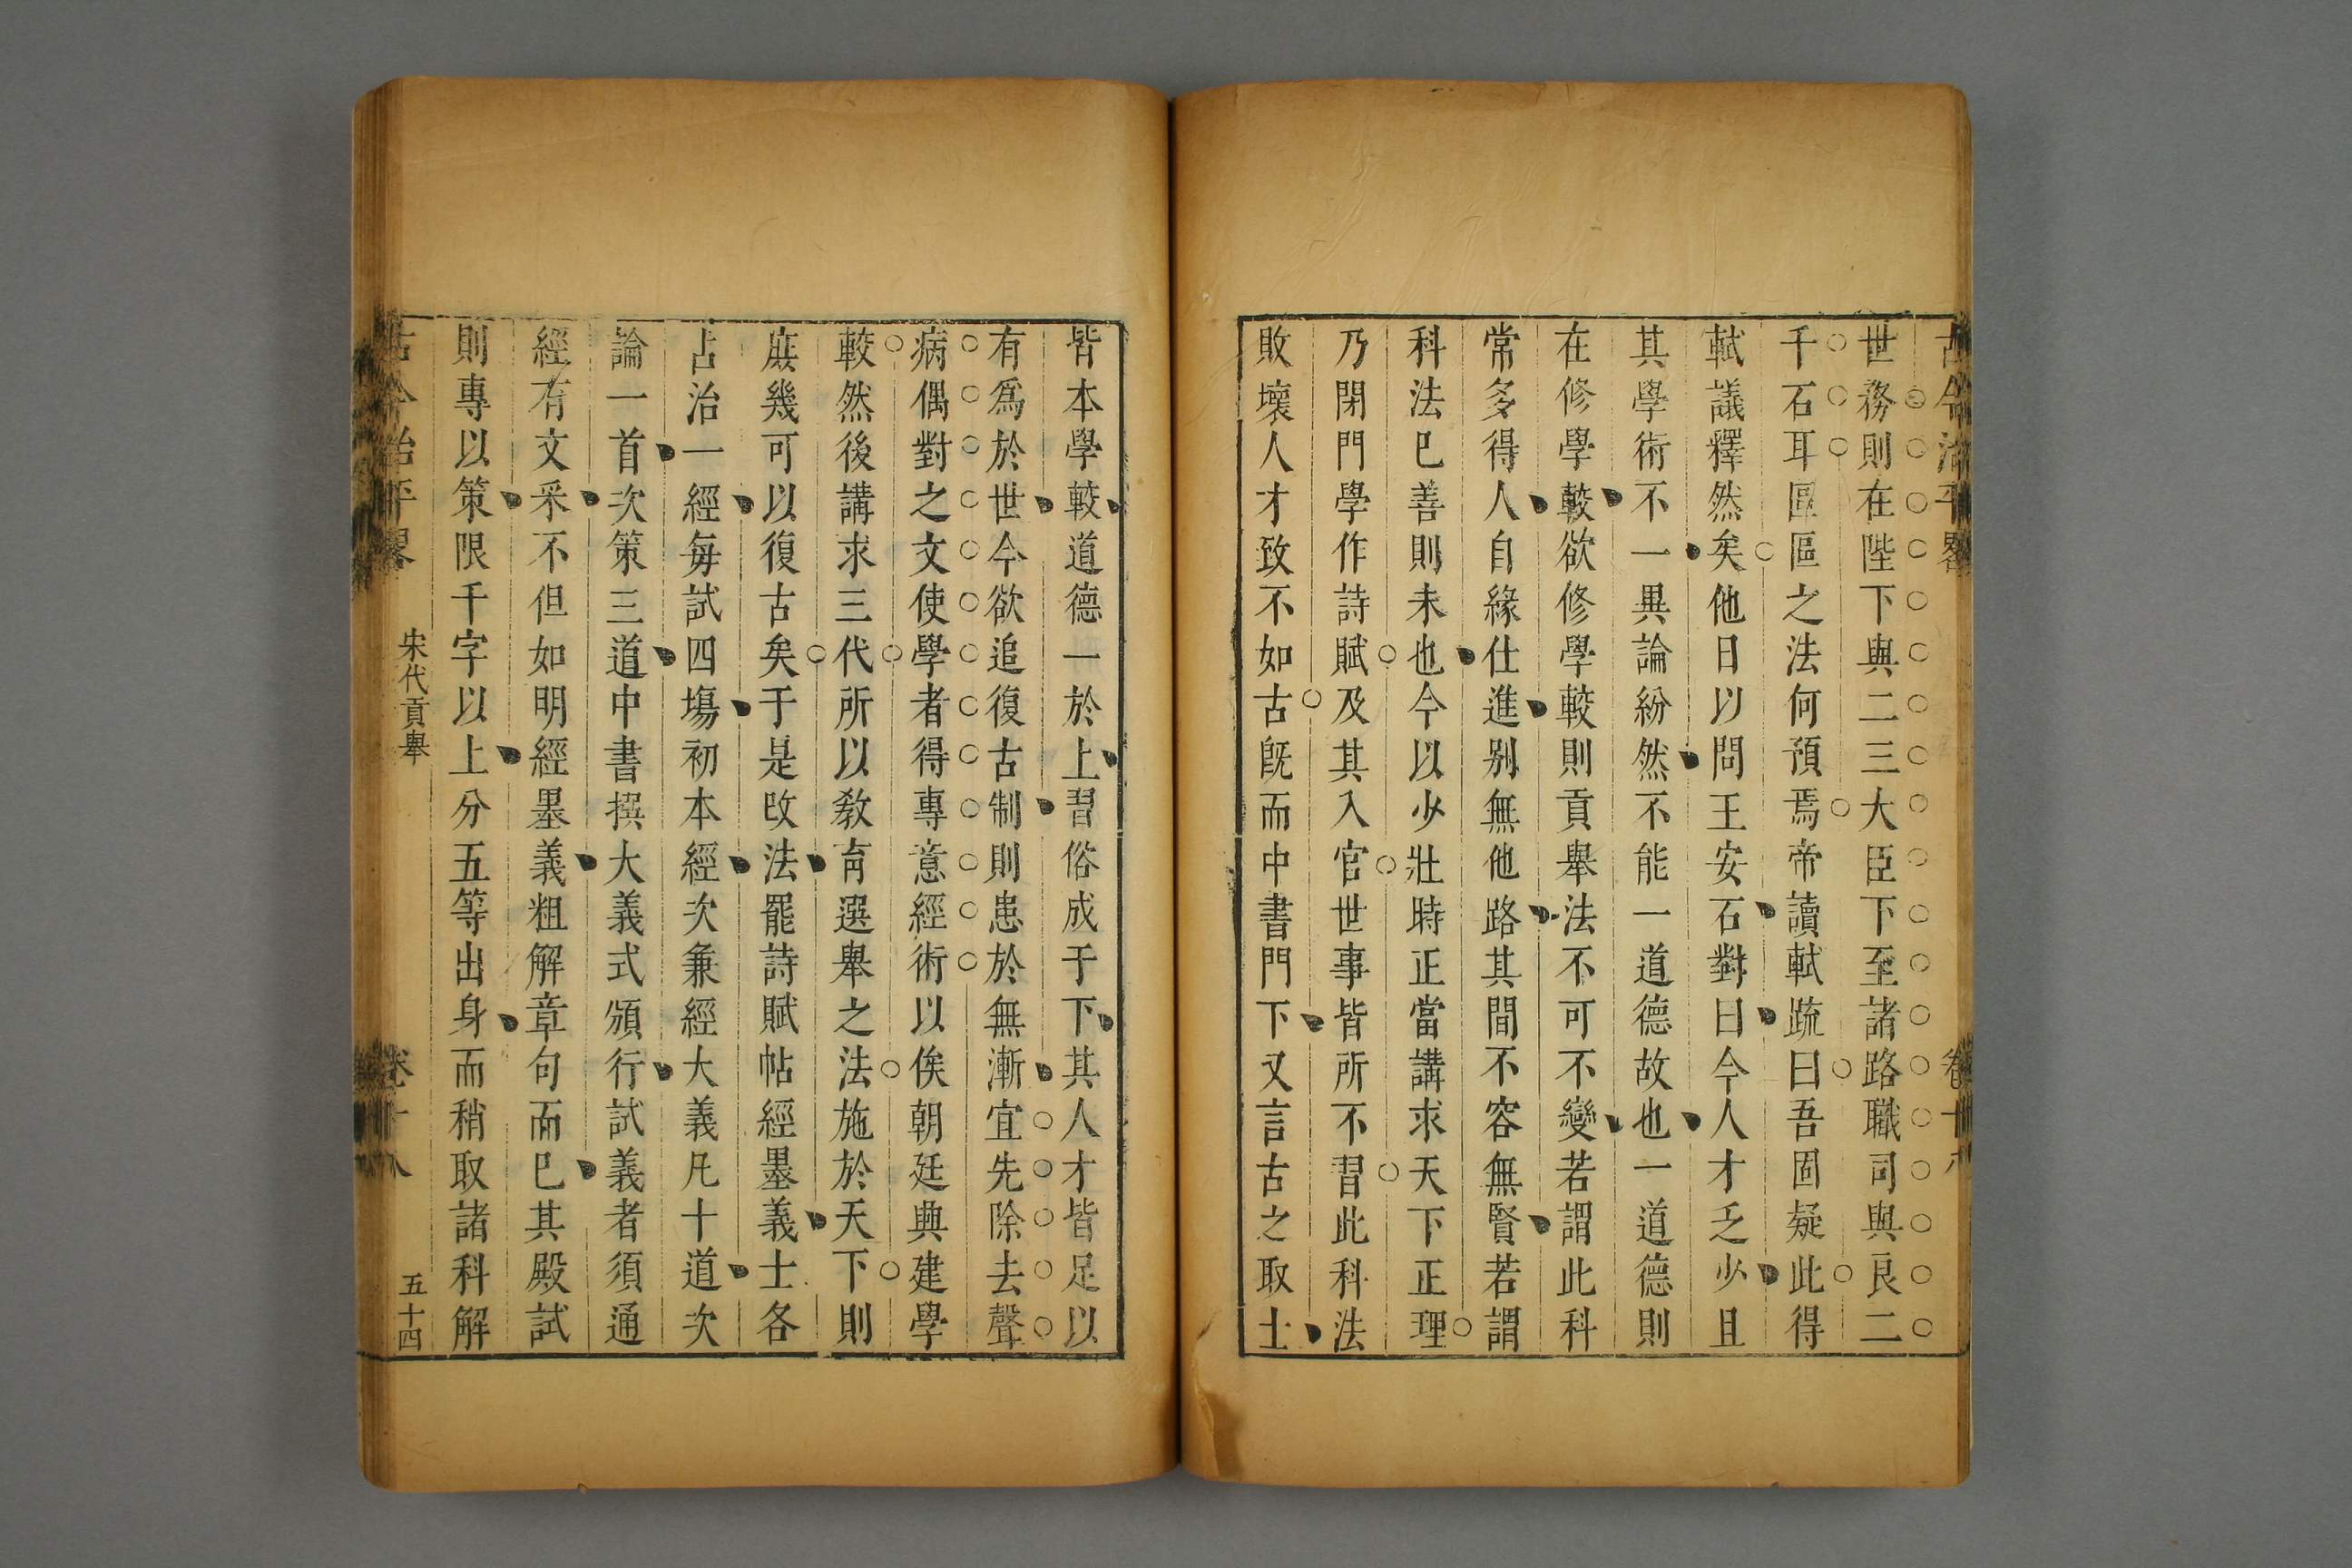 古今治平畧 卷十八
世務則在陛下與二三大臣下至諸路職司與良二
千石耳區區之法何預焉帝讀軾疏曰吾固疑此得
軾議釋然矣他日以問王安石對曰今人才乏少且
其學術不一異論紛然不能一道德故也一道德則
在修學較欲修學較則貢舉法不可不變若謂此科
常多得人自緣仕進别無他路其間不容無賢若謂
科法巳善則未也今以少壯時正當講求天下正理
乃閉門學作詩賦及其入官世事皆所不習此科法
敗壞人才致不如古旣而中書門下又言古之取士
皆本學較道德一於上習俗成于下其人才皆足以
有爲於世今欲追復古制則患於無漸宜先除去聲
病偶對之文使學者得專意經術以俟朝廷典建學
較然後講求三代所以敎育選舉之法施於天下則
庶幾可以復古矣于是改法罷詩賦帖經墨義士各
占治一經每試四塲初本經次兼經大義凡十道次
論一首次策三道中書撰大義式頒行試義者須通
經有文采不但如明經墨義粗解章句而巳其殿試
則專以策限千字以上分五等出身而稍取諸科解
古今治平畧 宋代貢舉 卷十八 五十四